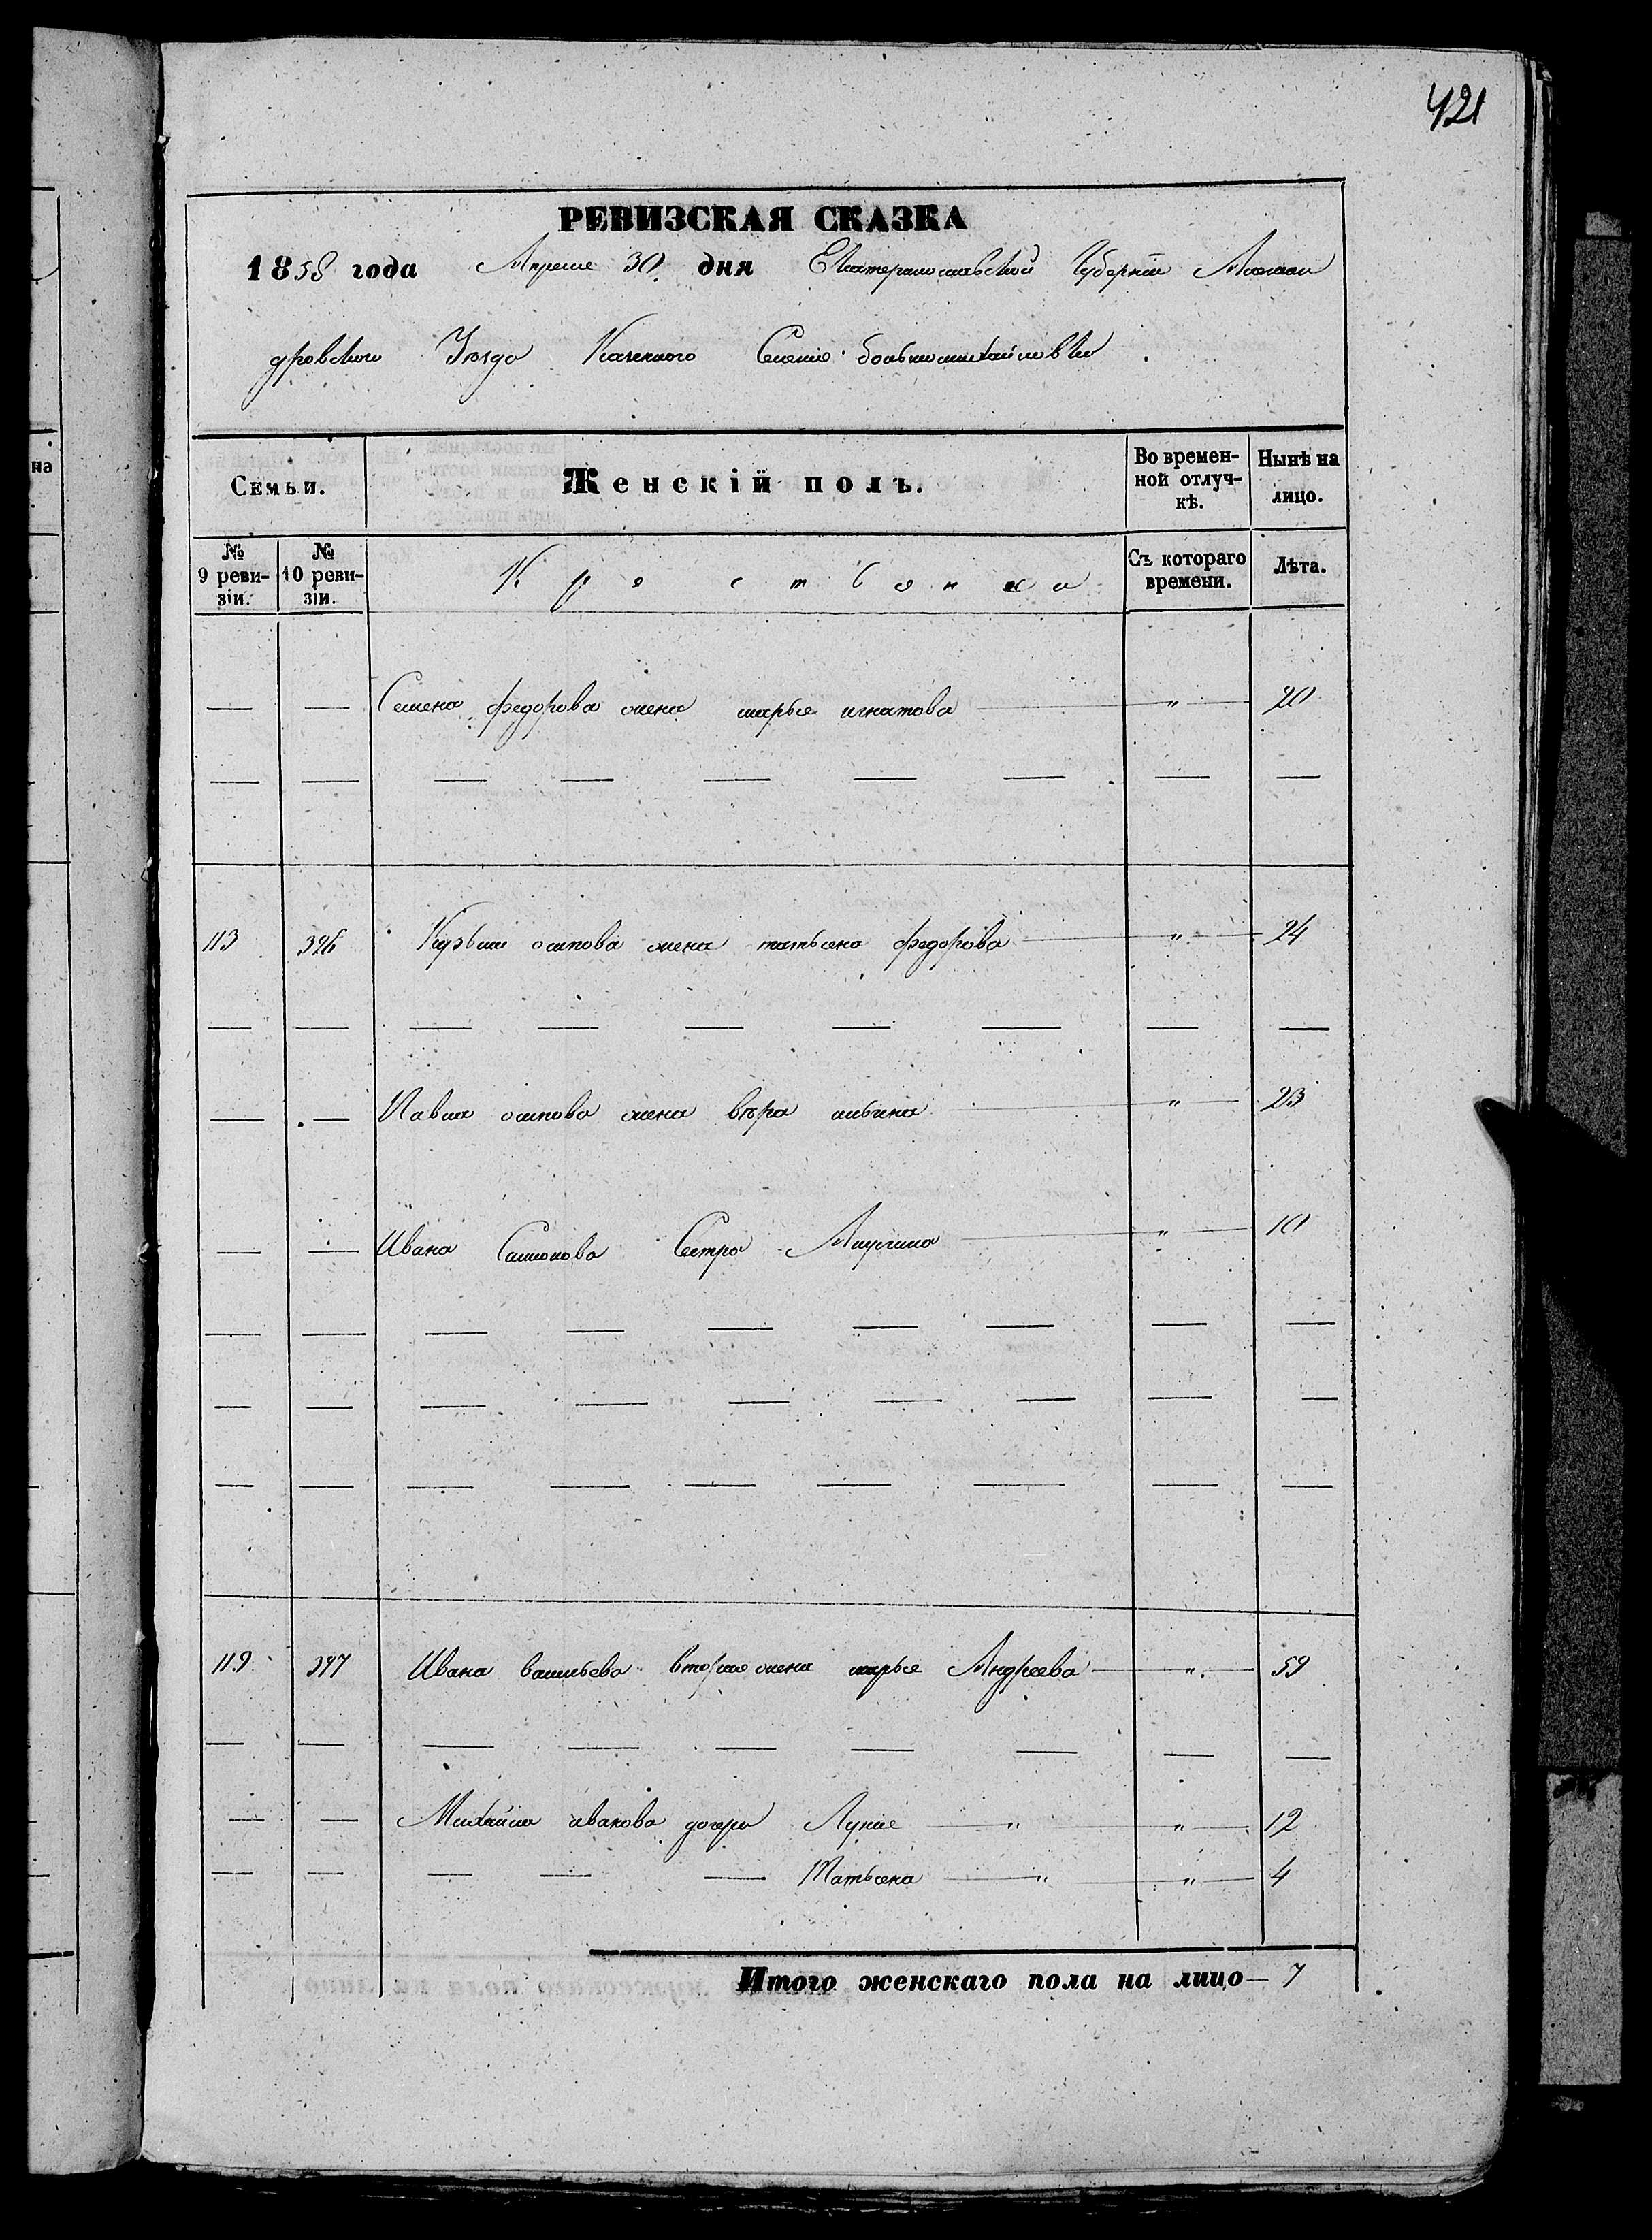 421
РЕВИЗСКАЯ СКАЗКА
1858 года Апреля 30 дня Екатеринославской Губернии Александ
дровского Уезда Казенного Селения большемихайловки
Семьи. Женскій полъ. Во времен- Нынѣ на
ной отлуч- лицо.
кѣ.
№ № Крестьянка Съ котораго Лѣта.
9 реви- 10 реви- времени.
зіи. зіи.
— — Семена федорова жена марья игнатова — " — 20
113 396 Кузьмы осипова жена татьяна федорова — " — 24
— — Павла осипова жена вѣра ильина — " — 23
— — Ивана Сестра — " — 10
119 397 Ивана васильева вторая жена марья Андреева — " — 59
— — Михайла иванова дочери Лукия — " — " — 12
— — — — — Татьяна — " — " — 4
Итого женскаго пола на лицо — 7
на